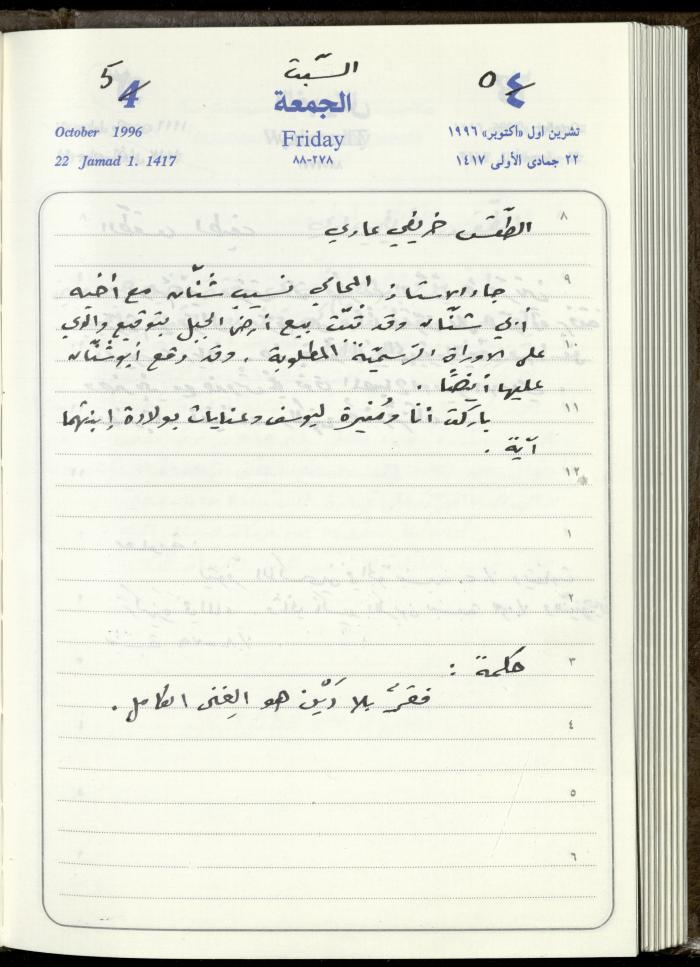 السّبت
5 4
الجمعة
٥ ٤
October 1996
Friday
تشرين اول «اكتوبر» ١٩٩٦
22 Jamad 1. 1417
٨٨-٢٧٨
٢٢ جمادى الأولى ١٤١٧
٨
الطّقس خريفي عادي
٩
جاء الاستاذ المحامي نسيب شنّان مع أخيه
أبي شنّان وقد تمّت بيع أرض الجبل بتوقيع والدي
١٠
على الاوراق الرّسميّة المطلوبة . وقد وقع أبو شنّان
عليها أيضًا .
١١
باركت أنا ومُنيرة ليوسف وعنايات بولادة إبنتهما
آية .
١٢
١
٢
٣
حكمة :
فقرٌ بلا دَيْن هو الغِنى الكامل .
٤
٥
٦